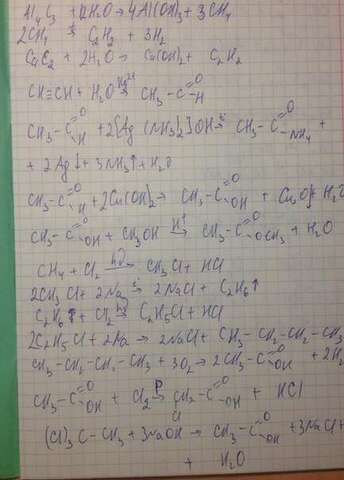 Al₄C₃ + 12H₂O → 4Al(OH)₃ + 3CH₄
2CH₄ →(t) C₂H₂ + 3H₂
CaC₂ + 2H₂O → Ca(OH)₂ + C₂H₂
CH≡CH + H₂O →(Hg²⁺) CH₃-C(=O)-H
CH₃-C(=O)-H + 2[Ag(NH₃)₂]OH → CH₃-C(=O)-NH₄ +
+ 2Ag↓ + 3NH₃↑ + H₂O
CH₃-C(=O)-H + 2Cu(OH)₂ → CH₃-C(=O)-OH + H₂O
CH₃-C(=O)-OH + CH₃OH →(H⁺) CH₃-C(=O)-OCH₃ + H₂O
CH₄ + Cl₂ →(hν) CH₃Cl + HCl
2CH₃Cl + 2Na → 2NaCl + C₂H₆↑
C₂H₆↑ + Cl₂ →(hν) C₂H₅Cl + HCl
2C₂H₅Cl + 2Na → 2NaCl + CH₃-CH₂-CH₂-CH₃
CH₃-CH₂-CH₂-CH₃ + 3O₂ → 2CH₃-C(=O)-OH + 2H₂
CH₃-C(=O)-OH + Cl₂ →(P) CH₂(Cl)-C(=O)-OH + HCl
(Cl)₃C-CH₃ + 3NaOH → CH₃-C(=O)-OH + 3NaCl +
+ H₂O